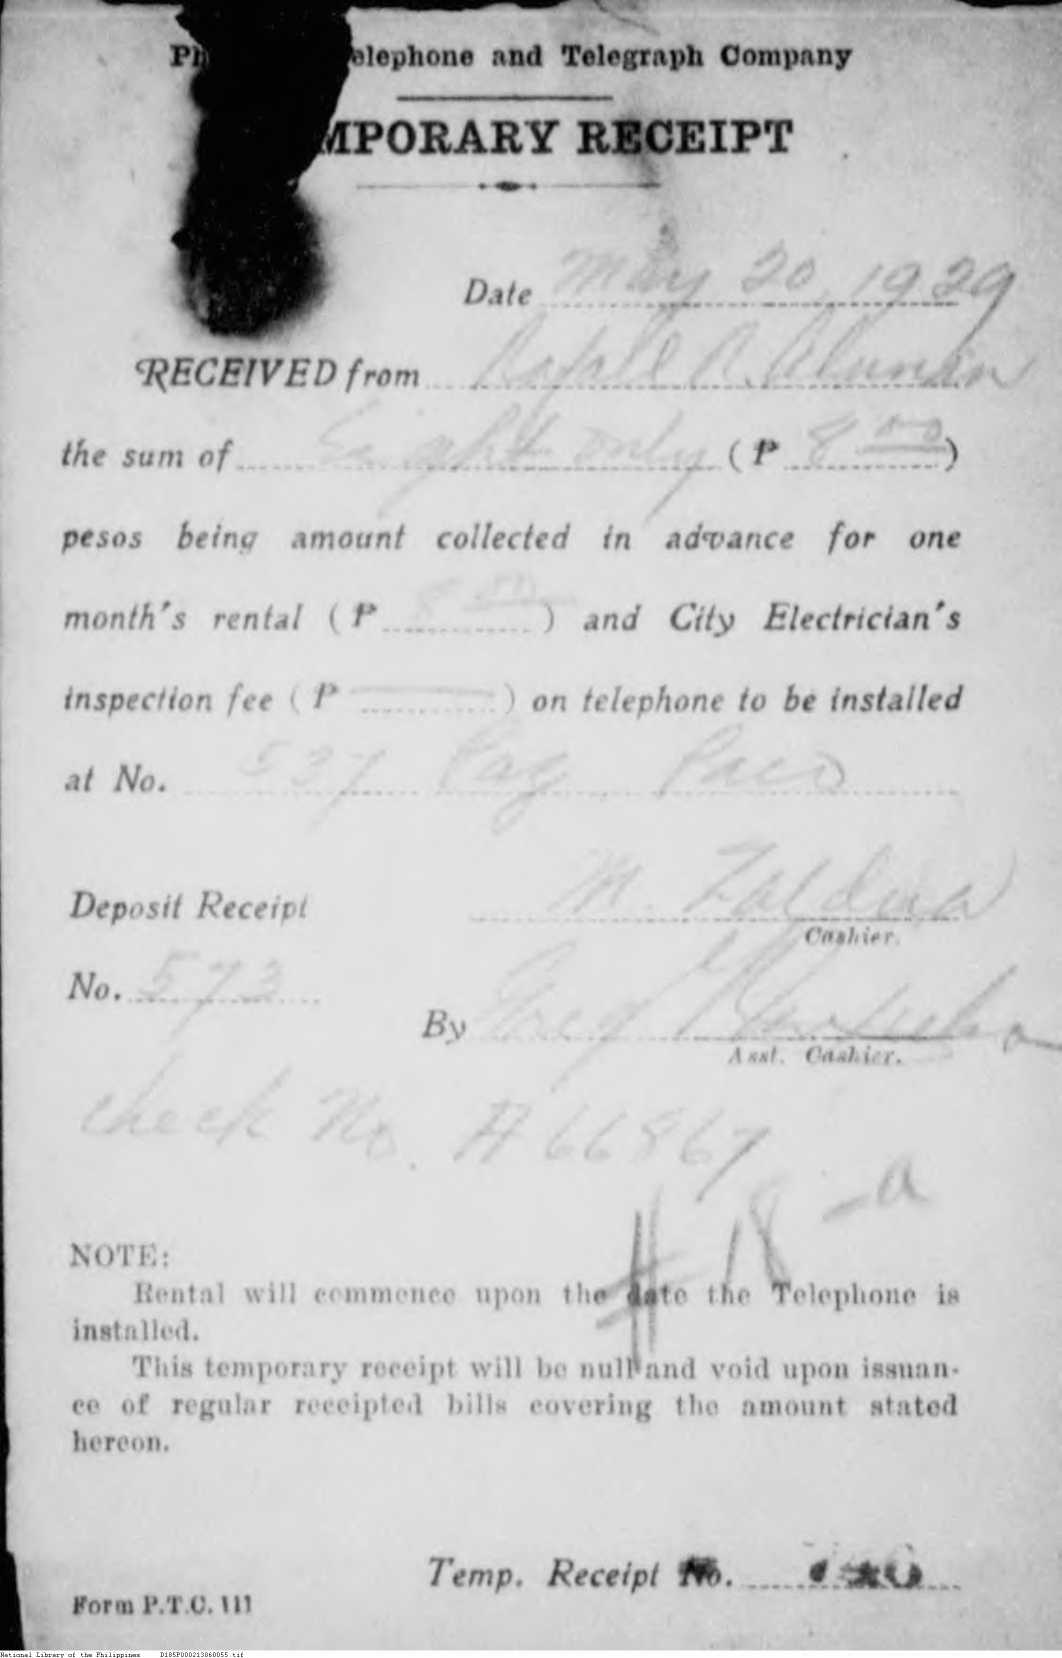 elephone and Telegraph Company
MPORARY RECEIPT
Date May 20, 1929
RECEIVED from R. Alunan
the sum of Eight only (₱ 8 00)
pesos being amount collected in advance for one
month's rental (₱ 8 00) and City Electrician's
inspection fee (₱ ——) on telephone to be installed
at No. 537 Paz Paco
Deposit Receipt M. Zaldua
Cashier.
No. 573
By Greg
Asst. Cashier.
Check No. A 66867
# 18 - a
NOTE:
Rental will commence upon the date the Telephone is
installed.
This temporary receipt will be null and void upon issuan-
ce of regular receipted bills covering the amount stated
hereon.
Temp. Receipt No.
Form P.T.C. 111
National Library of the Philippines D185P000213060055.tif